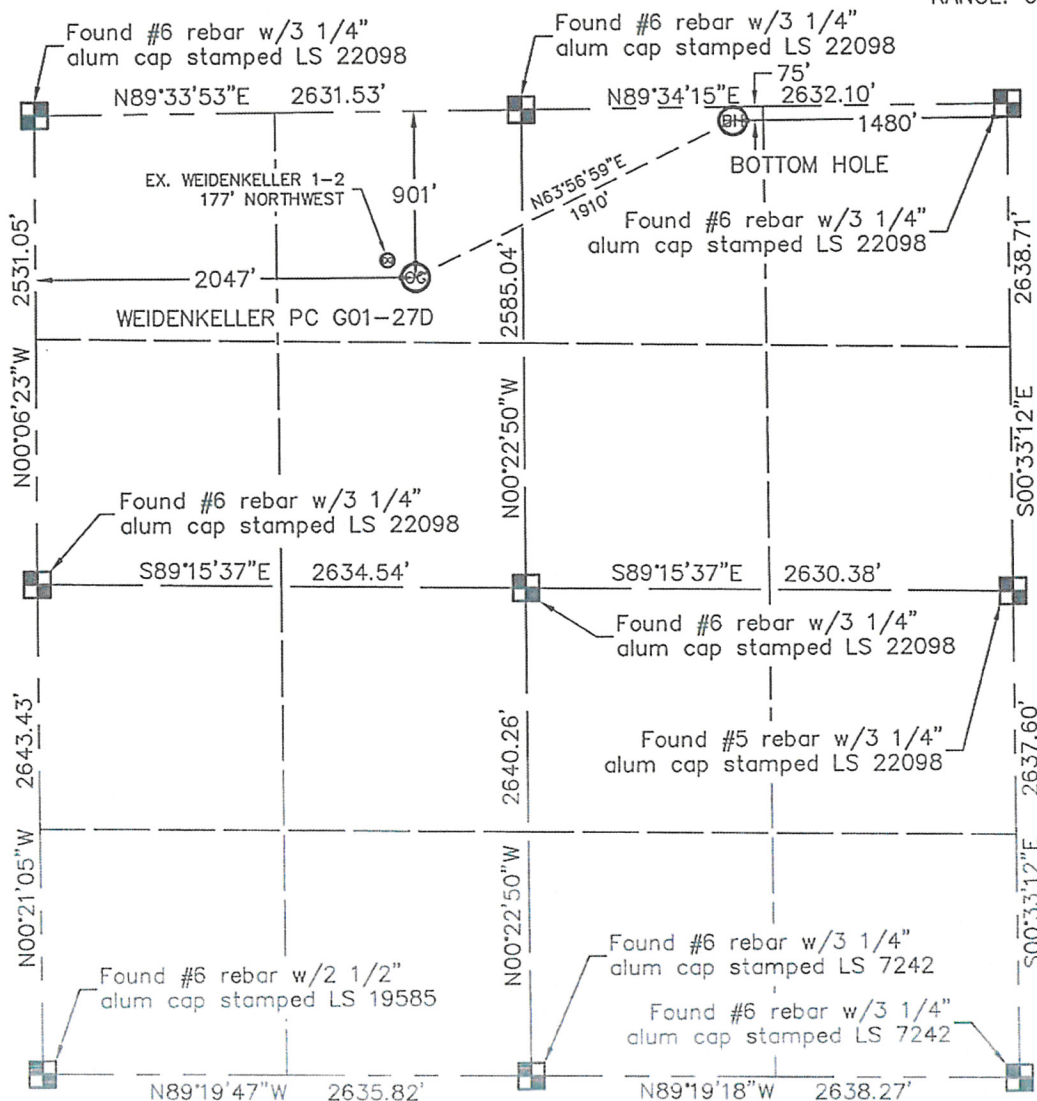 RANGE:
Found #6 rebar w/3 1/4"
alum cap stamped LS 22098
Found #6 rebar w/3 1/4"
alum cap stamped LS 22098
N89°33'53"E 2631.53'
N89°34'15"E 2632.10'
75'
BH
1480'
BOTTOM HOLE
EX. WEIDENKELLER 1-2
177' NORTHWEST
901'
N63°56'59"E
1910'
Found #6 rebar w/3 1/4"
alum cap stamped LS 22098
2047'
OG
WEIDENKELLER PC G01-27D
N00°06'23"W 2531.05'
N00°22'50"W 2585.04'
S00°33'12"E 2638.71'
Found #6 rebar w/3 1/4"
alum cap stamped LS 22098
S89°15'37"E 2634.54'
S89°15'37"E 2630.38'
Found #6 rebar w/3 1/4"
alum cap stamped LS 22098
Found #5 rebar w/3 1/4"
alum cap stamped LS 22098
N00°21'05"W 2643.43'
N00°22'50"W 2640.26'
S00°33'12"E 2637.60'
Found #6 rebar w/2 1/2"
alum cap stamped LS 19585
Found #6 rebar w/3 1/4"
alum cap stamped LS 7242
Found #6 rebar w/3 1/4"
alum cap stamped LS 7242
N89°19'47"W 2635.82'
N89°19'18"W 2638.27'